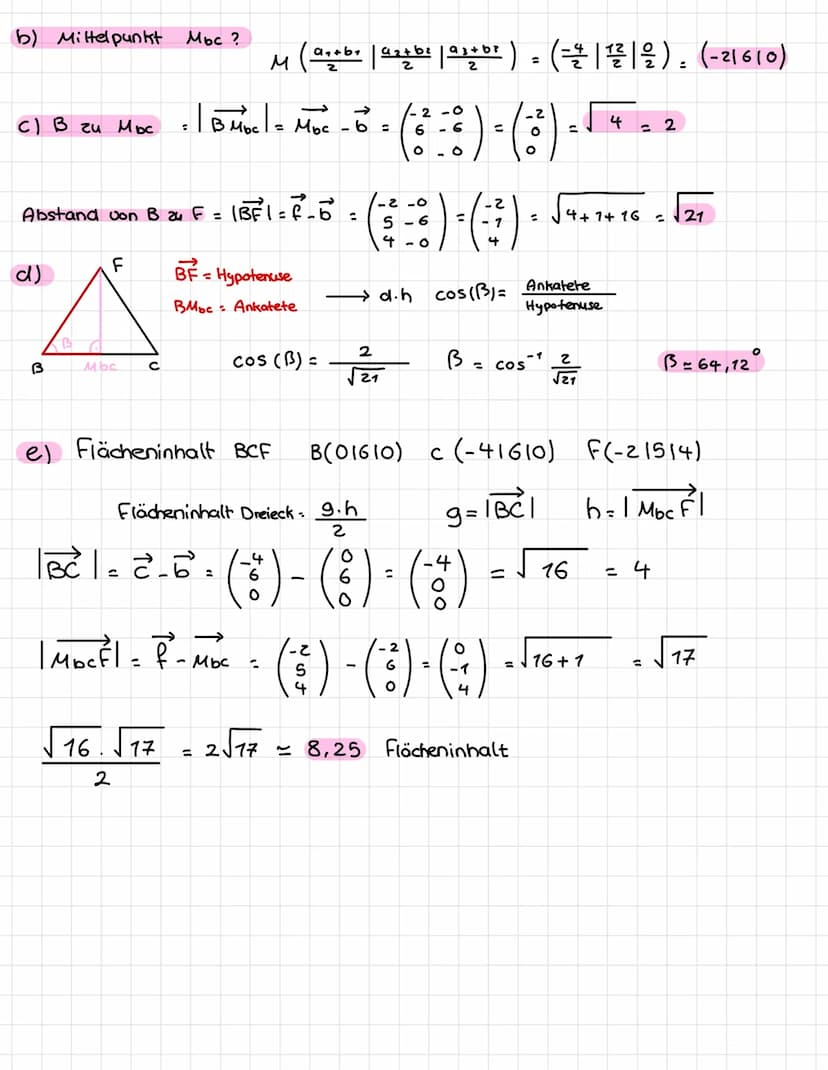 b) Mittelpunkt Mbc ?
M ( (a₁+b₁)/2 | (a₂+b₂)/2 | (a₃+b₃)/2 ) = (-4/2 | 12/2 | 0/2) = (-2|6|0)
c) B zu Mbc = |→BMbc| = →Mbc - →b = (-2 -0, 6 -6, 0 -0) = (-2, 0, 0) = √4 = 2
Abstand von B zu F = |→BF| = →f - →b = (-2 -0, 5 -6, 4 -0) = (-2, -1, 4) = √4+1+16 = √21
d)
F
B
β
Mbc
C
→BF = Hypotenuse
BMbc = Ankatete
→ d.h cos(β) = Ankatete/Hypotenuse
cos(β) = 2/√21 β = cos⁻¹ 2/√21 β ≈ 64,12°
e) Flächeninhalt BCF B(0|6|0) C(-4|6|0) F(-2|5|4)
Flächeninhalt Dreieck = g·h/2 g = |→BC| h = |→MbcF|
|→BC| = →c - →b = (-4, 6, 0) - (0, 6, 0) = (-4, 0, 0) = √16 = 4
|→MbcF| = →f - →Mbc = (-2, 5, 4) - (-2, 6, 0) = (0, -1, 4) = √16+1 = √17
√16 · √17 / 2 = 2√17 ≈ 8,25 Flächeninhalt